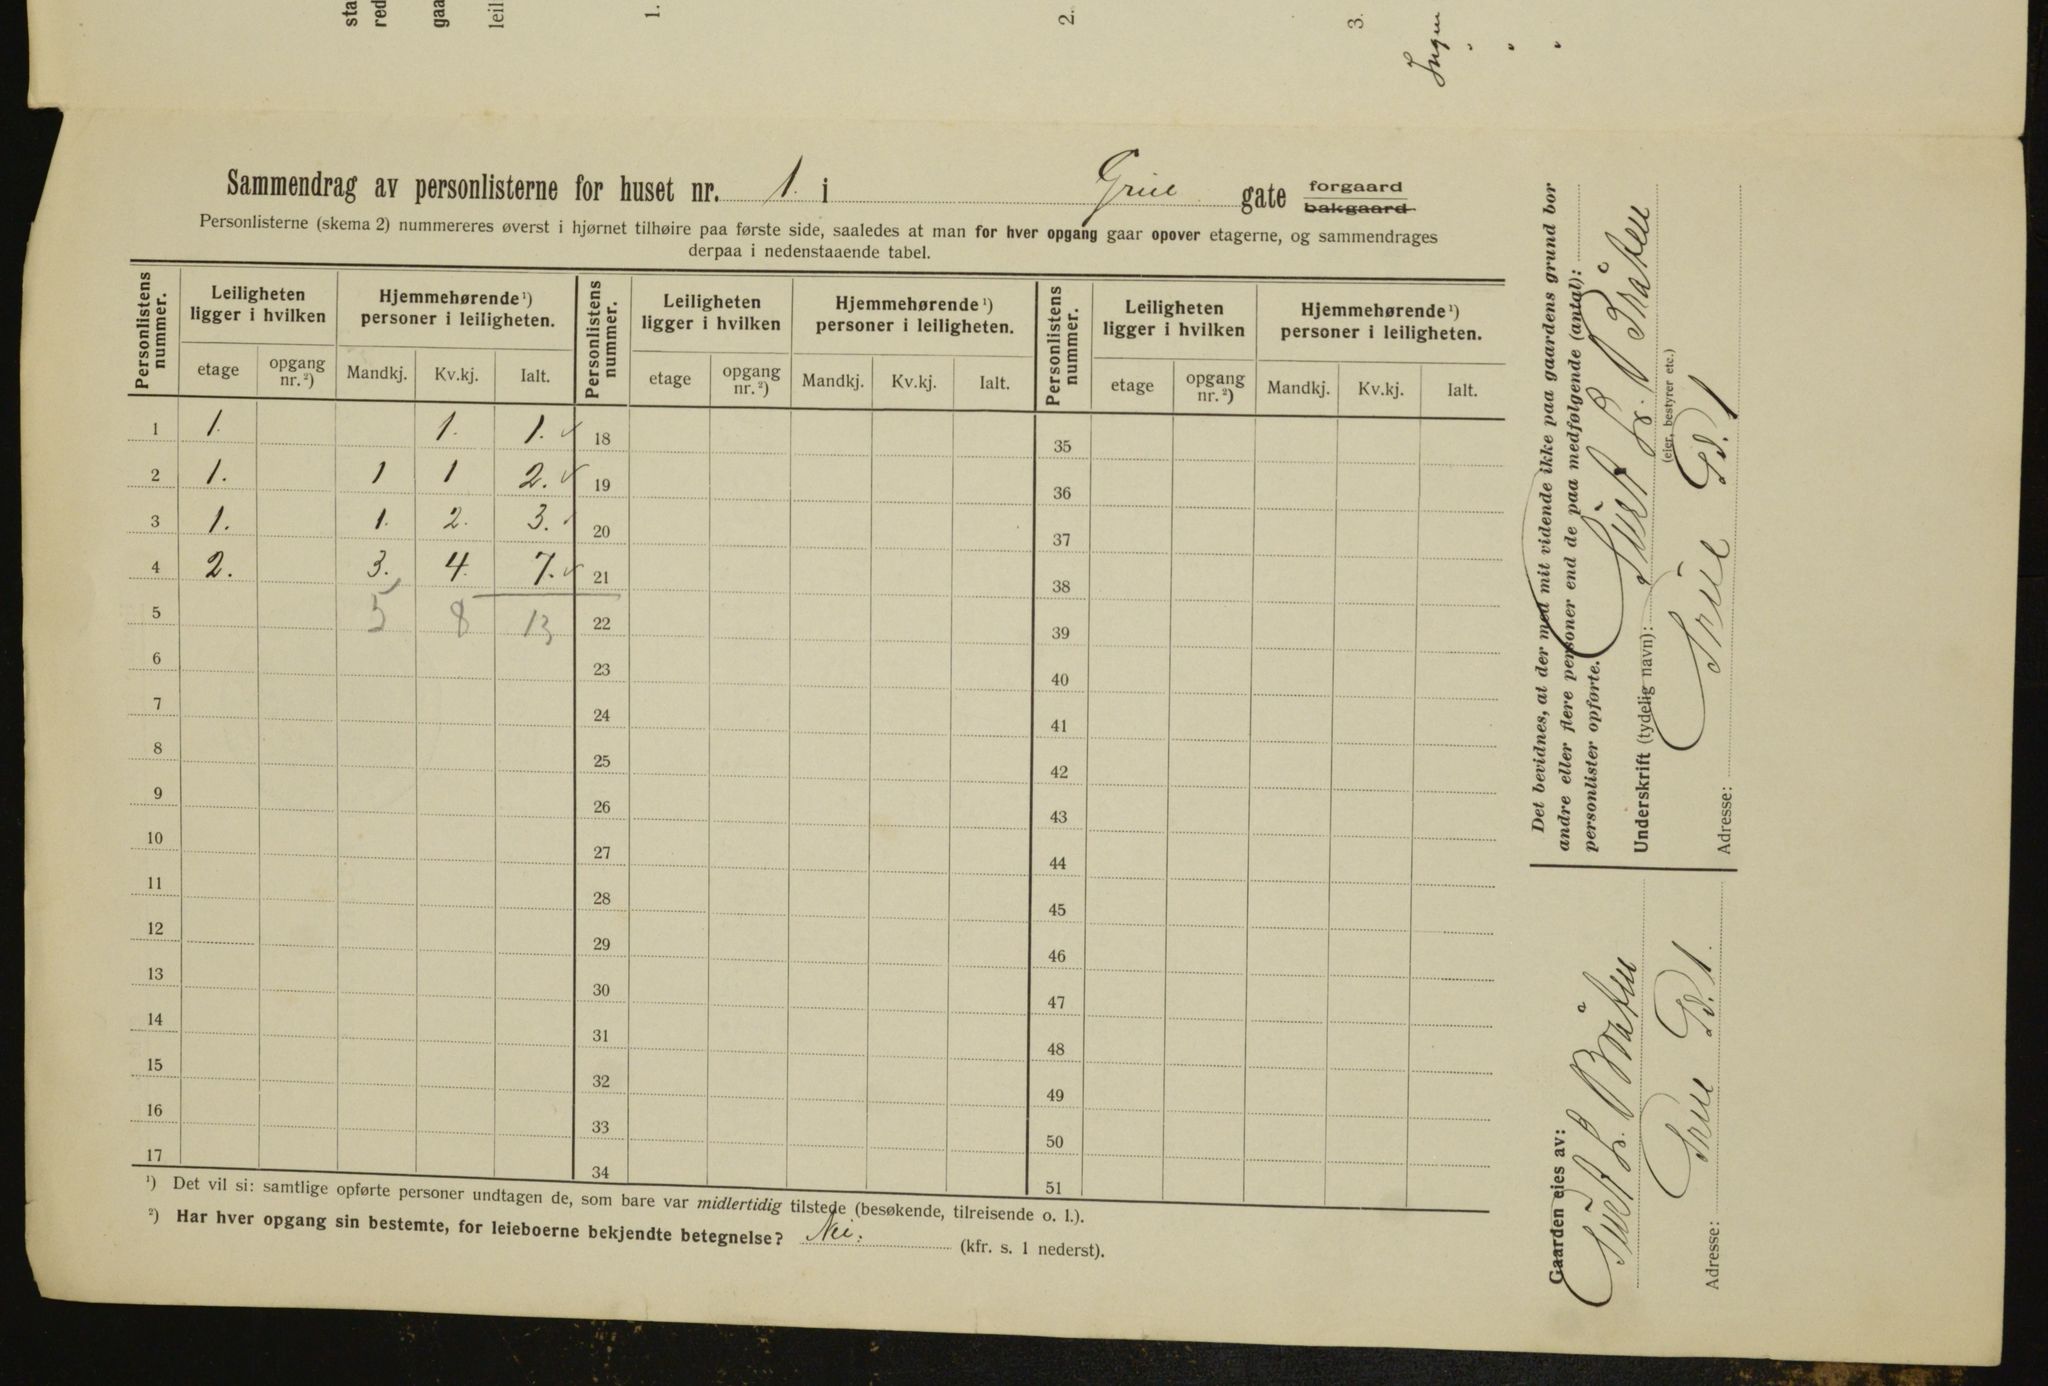 sta
red
gaa
leil
1.
2.
3.
Ingen
" " "
Sammendrag av personlisterne for huset nr. 1. i Grüe gate forgaard
bakgaard
Personlisterne (skema 2) nummereres øverst i hjørnet tilhøire paa første side, saaledes at man for hver opgang gaar opover etagerne, og sammendrages
derpaa i nedenstaaende tabel.
Personlistens nummer. Leiligheten ligger i hvilken Hjemmehørende ¹) personer i leiligheten. Personlistens nummer. Leiligheten ligger i hvilken Hjemmehørende ¹) personer i leiligheten. Personlistens nummer. Leiligheten ligger i hvilken Hjemmehørende ¹) personer i leiligheten.
etage opgang nr. ²) Mandkj. Kv.kj. Ialt. etage opgang nr. ²) Mandkj. Kv.kj. Ialt. etage opgang nr. ²) Mandkj. Kv.kj. Ialt.
1 1. 1. 1. 18 35
2 1. 1 1 2. 19 36
3 1. 1. 2. 3. 20 37
4 2. 3. 4. 7. 21 38
5 5 8 13 22 39
6 23 40
7 24 41
8 25 42
9 26 43
10 27 44
11 28 45
12 29 46
13 30 47
14 31 48
15 32 49
16 33 50
17 34 51
¹) Det vil si: samtlige opførte personer undtagen de, som bare var midlertidig tilstede (besøkende, tilreisende o. l.).
²) Har hver opgang sin bestemte, for leieboerne bekjendte betegnelse? Nei. (kfr. s. 1 nederst).
Det bevidnes, at der med mit vidende ikke paa gaardens grund bor
andre eller flere personer end de paa medfølgende (antal):
personlister opførte.
Underskrift (tydelig navn): Sivert L. Bråten
(eier, bestyrer etc.)
Adresse: Grüe Gd. 1
Gaarden eies av:
Sivert L. Bråten
Adresse: Grüe Gd. 1.